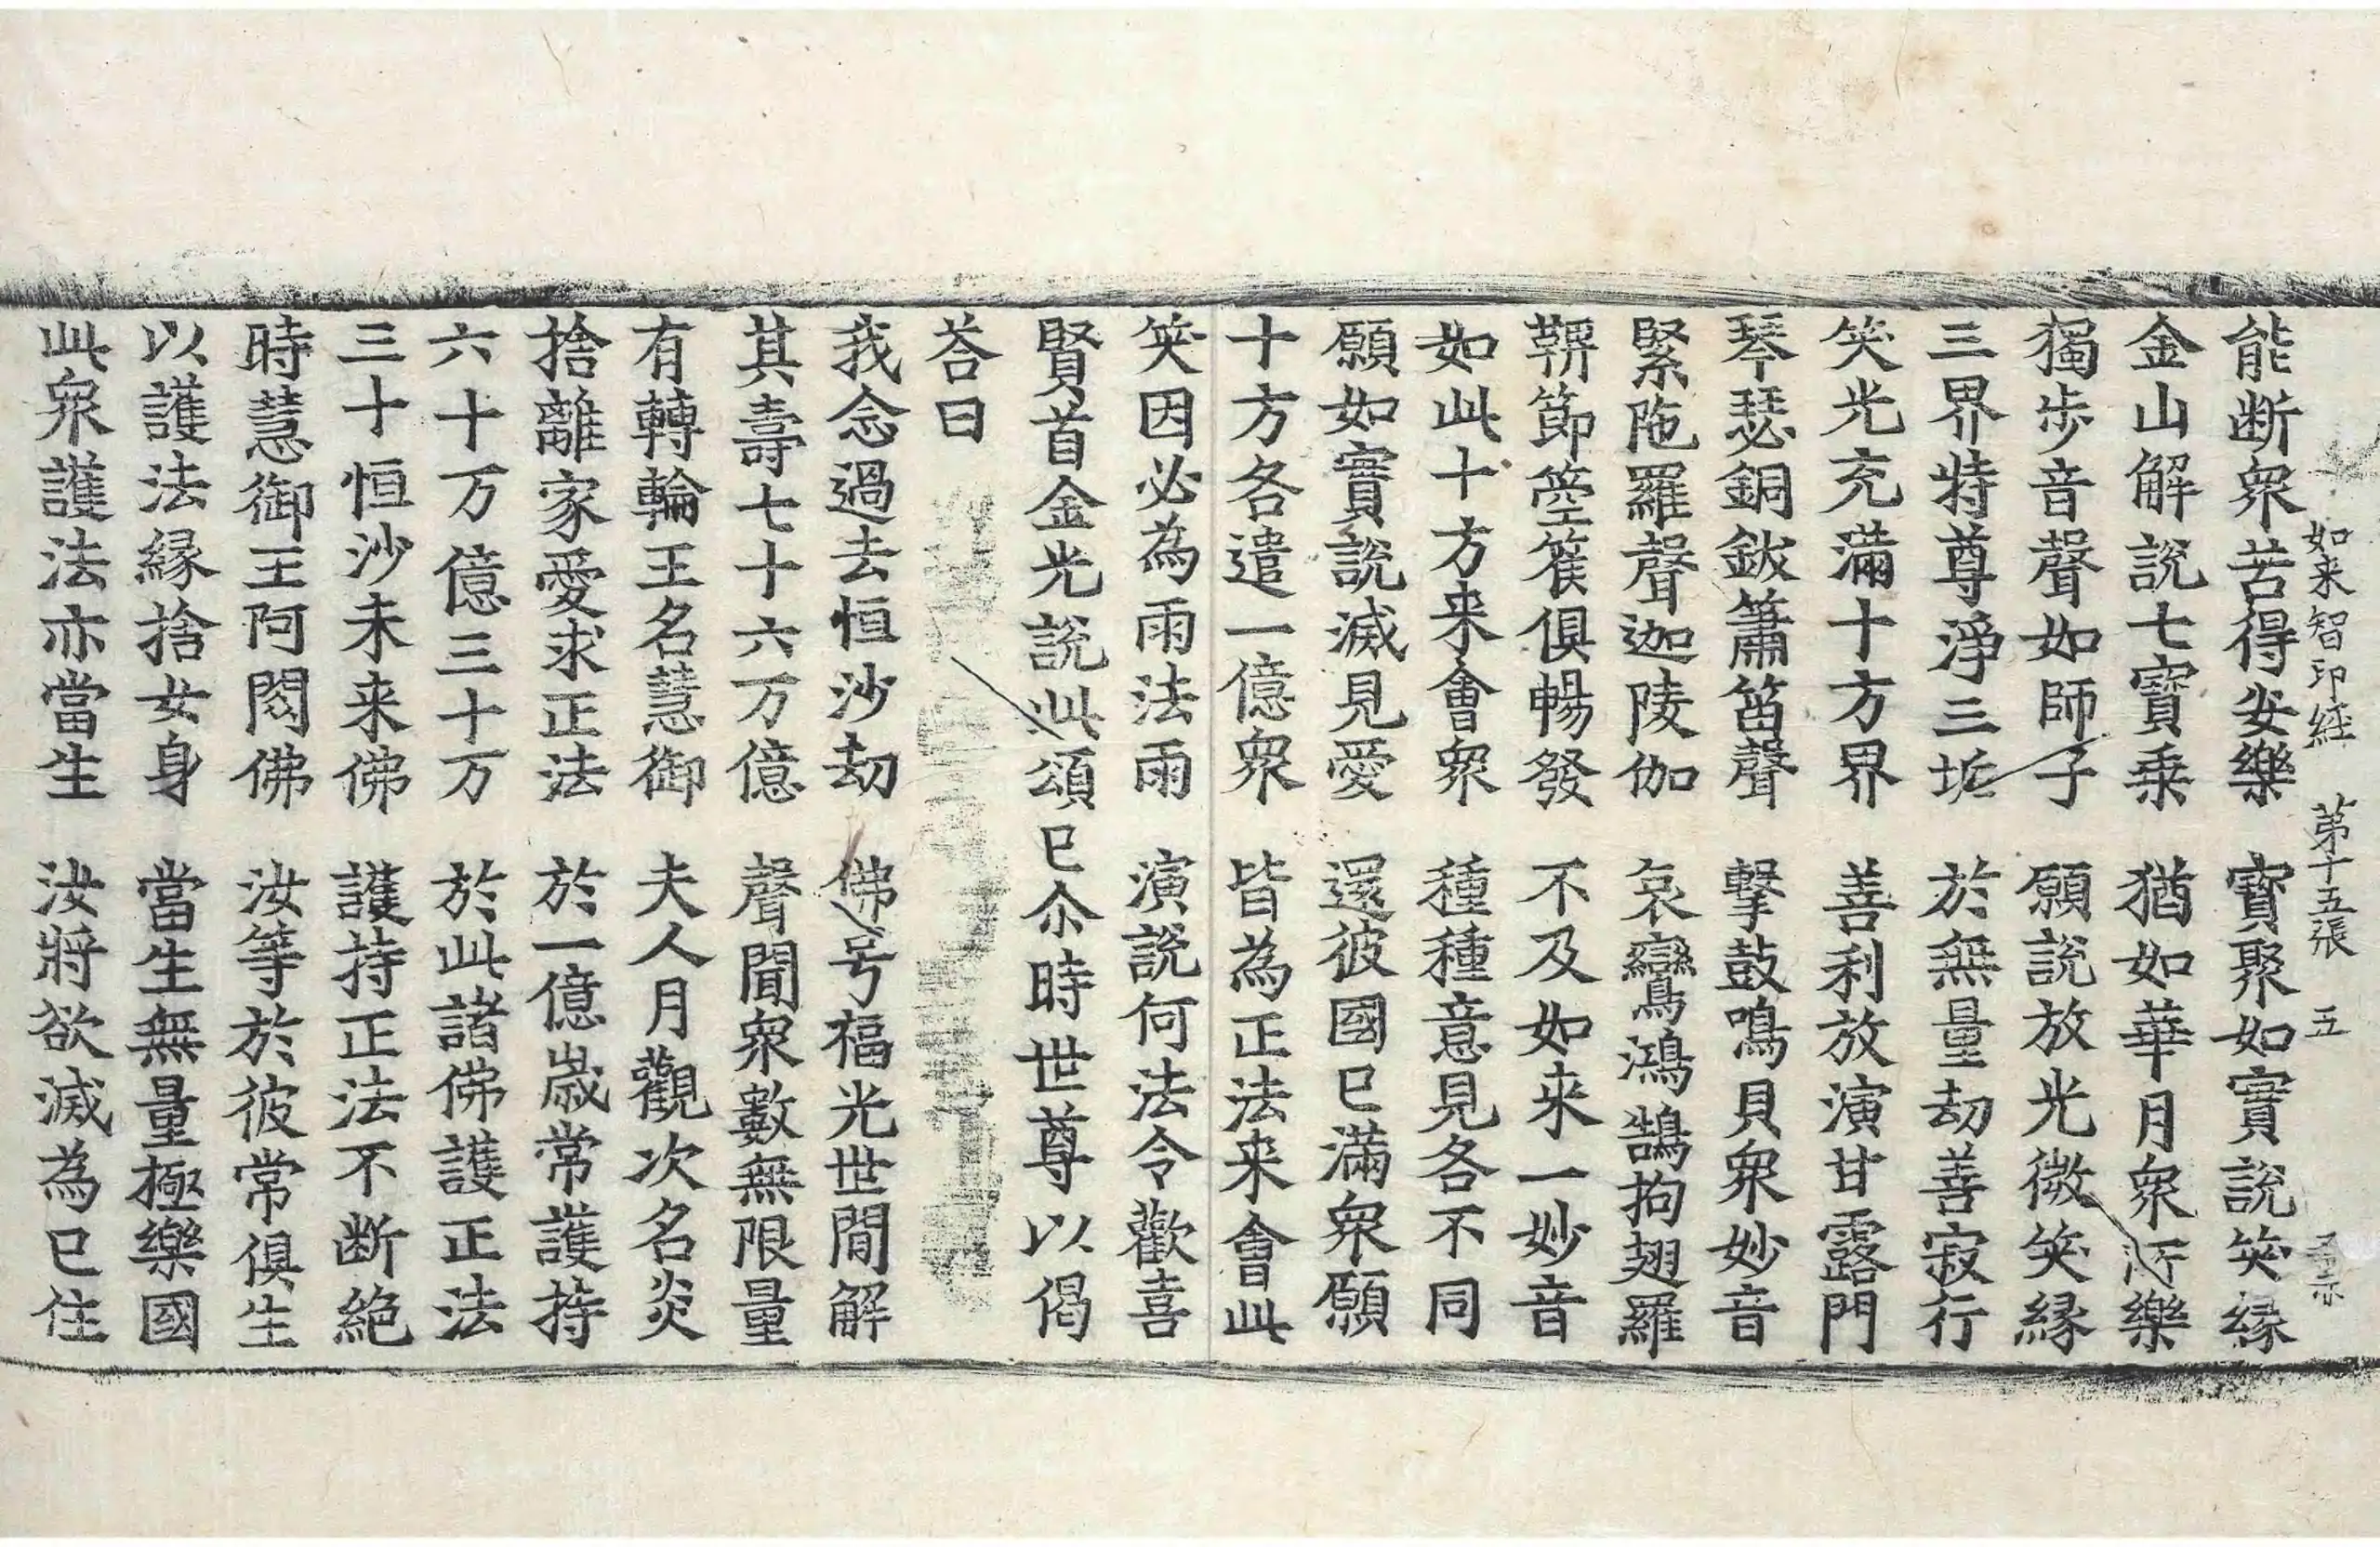 如来智印経 第十五張 五
能断衆苦得安樂 寳聚如實說笑緣
金山解說七寳乗 猶如華月衆所樂
獨步音聲如師子 願說放光微笑緣
三界特尊淨三垢 於無量劫善寂行
笑光充滿十方界 善利放演甘露門
琴瑟銅鈸簫笛聲 擊鼓鳴貝衆妙音
緊陁羅聲迦陵伽 哀鸞鴻鵠拘翅羅
鞞節箜篌俱暢發 不及如来一妙音
如此十方来會衆 種種意見各不同
願如實說滅見愛 還彼國已滿衆願
十方各遣一億衆 皆為正法来會此
笑因必為雨法雨 演說何法令歡喜
賢首金光說此頌已尒時世尊以偈
荅曰
我念過去恒沙劫 佛号福光世間解
其壽七十六万億 聲聞衆數無限量
有轉輪王名慧御 夫人月觀次名炎
捨離家愛求正法 於一億歲常護持
六十万億三十万 於此諸佛護正法
三十恒沙未来佛 護持正法不断絕
時慧御王阿閦佛 汝等於彼常俱生
以護法緣捨女身 當生無量極樂國
此衆護法亦當生 汝將欲滅為已住